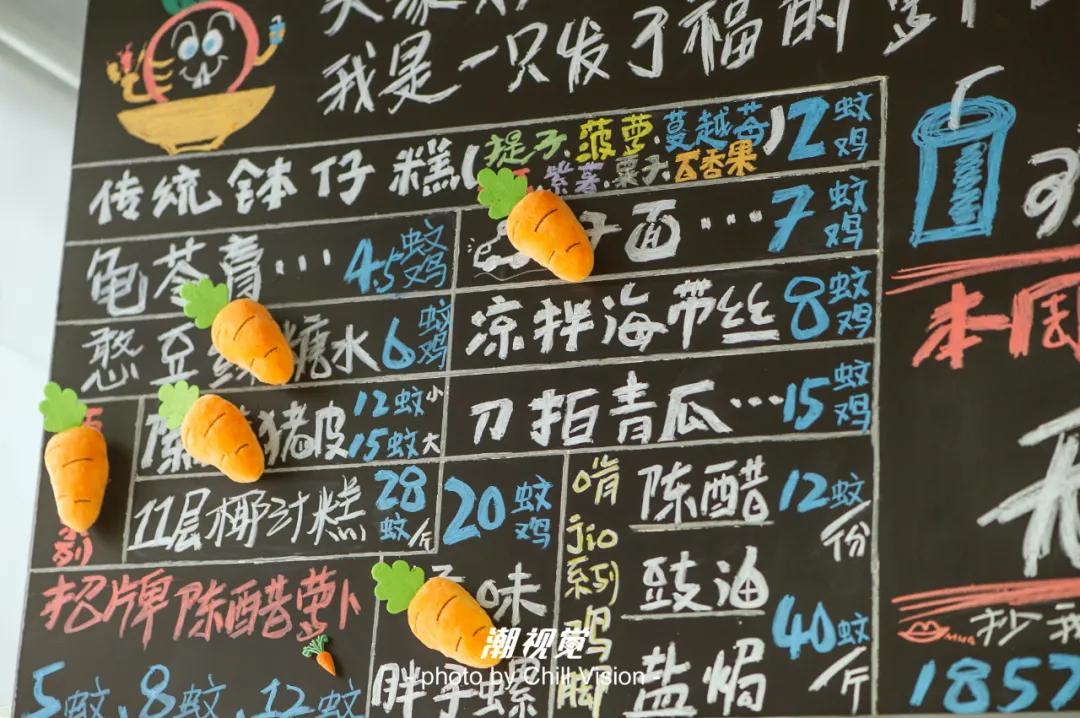 我是一只发了福的萝卜
传统钵仔糕(提子.菠萝.蔓越莓)2蚊鸡
紫薯.栗子百香果
龟苓膏…4.5蚊鸡
面…7蚊鸡
憨豆 糖水6蚊鸡
凉拌海带丝8蚊鸡
猪皮12蚊小
15蚊大
刀拍青瓜…15蚊鸡
11层椰汁糕28蚊/斤
20蚊鸡
味
胖子螺
啃jio系列鸡脚
陈醋12蚊/份
豉油
盐焗
40蚊/斤
招牌陈醋萝卜
5蚊、8蚊、12蚊
本周
MUA
抄我
1857
潮视觉
- photo by Chill Vision -